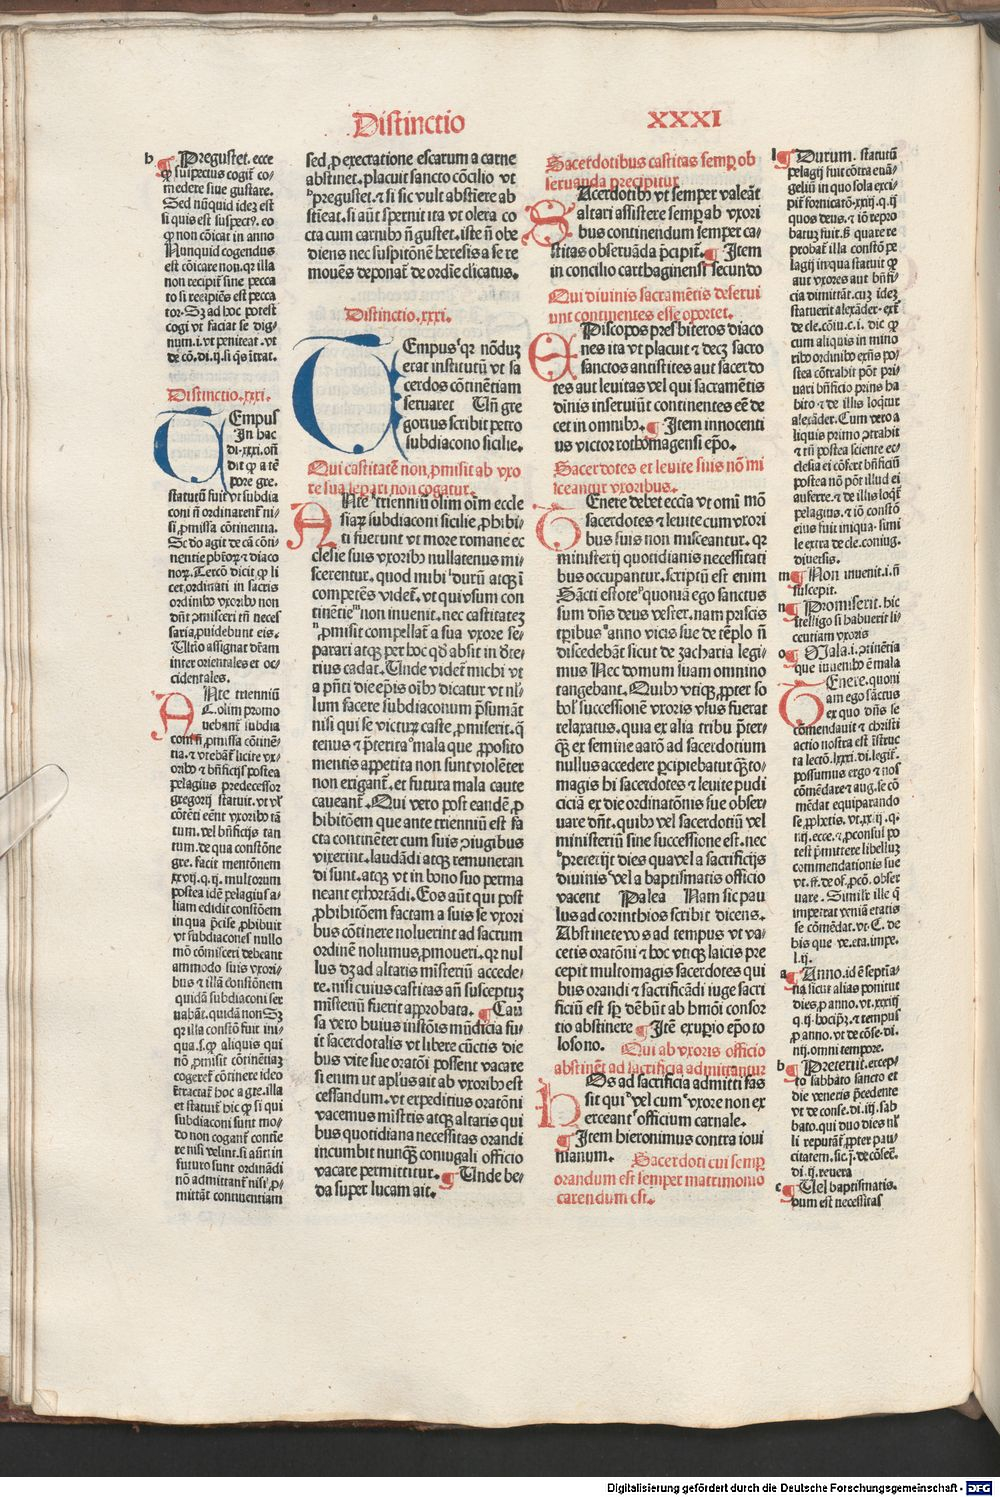 Distinctio XXXI
b ¶ Pregustet. ecce
ꝙ suspectus cogit᷑ co-
medere siue gustare.
Sed nūquid idez est
si quis est suspect⁹. eo
ꝙ non cōicat in anno
Nunquid cogendus
est cōicare non. qꝛ illa
non recipit᷑ sine pecca
to si recipiēs est pecca
tor. Sꝫ ad hoc potest
cogi vt faciat se dig-
num. i. vt peniteat. vt
Distinctio.xxxi.
TEmpus
In hac
di. xxxi. oñ
dit ꝙ a tē
pore gre.
statutū fuit vt subdia
coni ñ ordinarent᷑ ni-
si ꝓmissa cōtinentia.
Sc̄do agit de eā cōti-
nentie pb̄roꝝ ⁊ diaco
noꝝ. Tercō dicit ꝙ li
cet ordinati in sacris
ordinibꝰ vxoribꝰ non
dn̄t ꝓmisceri tn̄ neces
saria ꝓuidebunt eis.
Ultīo assignat dr̄am
inter orientales et oc-
cidentales.
ANte trienniū
C. olim promo
uebant᷑ subdia
coni ñ ꝓmissa cōtinē-
tia. ⁊ vtebāt᷑ licite vx-
oribꝰ ⁊ bn̄ficijs postea
pelagius predecessoꝛ
gregorij statuit. vt vl᷑
cōtēti eēnt vxoribꝰ tā
tum. vel bn̄ficijs tan
tum. de qua constōne
gre. facit mentōnem
xxvij. q. ij. multorum
postea idē pelagius a-
liam edidit constōem
in qua p̄cise ꝓhibuit
vt subdiacones nullo
mō cōmisceri debeant
ammodo suis vxori-
bus ⁊ illā constōnem
quidā subdiaconi ser
uabāt. quidā non Sꝫ
qꝛ illa constō fuit ini-
qua. s. ꝙ aliquis qui
nō ꝓmisit cōtinētiaꝫ
cogeret᷑ cōtinere ideo
r̄tractat᷑ hoc a gre. illa
et statuit᷑ hic ꝙ si qui
subdiaconi sunt mo-
do non cogant᷑ contīe
re nisi velint. si aūt in
futuro sunt ordinādi
nō admittant᷑ nisi ꝓ-
mittāt continentiam
sed ꝓ execratione escarum a carne
abstinet. placuit sancto cōcilio vt
ᵇpregustet. ⁊ si sic vult abstīere ab
stīeat. si aūt spernit ita vt olera co
cta cum carnibꝰ ñ gustet. iste ñ obe
diens nec suspitōnē heresis a se re
mouēs deponat᷑ de ordīe clīcatus.
Distinctio.xxxi.
TEmpus qꝛ nōduꝫ
erat institutū vt sa
cerdos cōtinētiam
seruaret Uñ gre
gorius scribit petro
subdiacono sicilie.
Qui castitatē non ꝓmisit ab vxo
re sua separi non cogatur.
ANte trienniū olim oīm eccle
siaꝝ subdiaconi sicilie ꝓhibi-
ti fuerunt vt more romane ec
clesie suis vxoribꝰ nullatenus mi-
scerentur. quod mihi ˡdurū atqꝫ ī
competēs videt᷑. vt qui vsum con
tinētie ᵐnon inuenit. nec castitateꝫ
ⁿꝓmisit compellat᷑ a sua vxore se-
parari atqꝫ per hoc qd̄ absit in d̄te
rius cadat. Unde videt᷑ michi vt
a p̄nti die ep̄is oībꝰ dicatur vt nl̄-
lum facere subdiaconum p̄sumāt
nisi qui se victuꝝ caste ꝓmiserit. q̄
tenus ⁊ p̄terita ᵒmala que ꝓposito
mentis appetita non sunt violēter
non exigant᷑. et futura mala caute
caueant᷑. Qui vero post eandē ꝓ
hibitōem que ante trienniū est fa
cta continēter cum suis ꝯiugibus
vixerint. laudādi atqꝫ remuneran
di sunt. atqꝫ vt in bono suo perma
neant exhortādi. Eos aūt qui post
ꝓhibitōem factam a suis se vxori
bus cōtinere noluerint ad sacrum
ordinē nolumus ꝓmoueri. qꝛ nul
lus dꝫ ad altaris mīsteriū accede-
re. nisi cuius castitas añ susceptuꝫ
mīsteriū fuerit approbata. ¶ Cau
sa vero huius instōis mūdicia fu-
it sacerdotalis vt libere cūctis die
bus vite sue oratōi possent vacare
si enim ut aplꝰus ait ab vxoribꝰ est
cessandum. vt expeditius oratōni
vacemus mīstris atqꝫ altaris qui
bus quotidiana necessitas orandi
incumbit nunqꝫ coniugali officio
vacare permittitur. ¶ Unde be-
da super lucam ait.
Sacerdotibus castitas semꝑ ob
seruanda precipitur
SAcerdotibꝰ vt semper valeāt
altari assistere semꝑ ab vxori
bus continendum semper ca-
stitas obseruāda p̄cipit᷑. ¶ Item
in concilio carthaginensi secundo
Qui diuinis sacramētis deserui
unt continentes esse oportet.
EPiscopos presbiteros diaco
nes ita vt placuit ⁊ decꝫ sacro
sanctos antistites aut sacerdo
tes aut leuitas vel qui sacramētis
diuinis inseruiūt continentes eē de
cet in omnibꝰ. ¶ Item innocenti
us victor rothomagensi ep̄o.
Sacerdotes et leuite suis nō mi
sceantur vxoribus.
TEnere debet ecc̄ia vt omī mō
sacerdotes ⁊ leuite cum vxori
bus suis non misceantur. qꝛ
ministerij quotidianis necessitati
bus occupantur. scriptū est enim
Sācti estote quoniā ego sanctus
sum dn̄s deus vester. nam priscis
tꝑribus ᵃanno vicis sue de tēplo ñ
discedebāt sicut de zacharia legi-
mus Nec domum suam omnino
tangebant. Quibꝰ vtiqꝫ ꝓpter so
bol᷑ successionē vxoris vsus fuerat
relaxatus. quia ex alia tribu p̄ter-
qꝫ ex semine aarō ad sacerdotium
nullus accedere p̄cipiebatur qꝫto-
magis hi sacerdotes ⁊ leuite pudi
ciciā ex die ordinatōnis sue obser
uare dn̄t. quibꝰ vel sacerdotiū vel
ministeriū sine successione est. nec
ᵇpreterijt dies qua vel a sacrificijs
diuinis vel a baptismatis officio
vacent Palea Nam sic pau
lus ad corinthios scribit dicens.
Abstinete vos ad tempus vt va-
cetis oratōni ⁊ hoc vtiqꝫ laicis pre
cepit multomagis sacerdotes qui
bus orandi ⁊ sacrificādi iuge sacri
ficiū est sꝑ debūt ab hmōi consor
tio abstinere ¶ Itē exuꝑio ep̄o to
losono. Qui ab vxoris officio
abstinēt ad sacrificia admittantur
hOs ad sacrificia admitti fas
sit qui vel cum ᶜvxore non ex
erceant officium carnale.
¶ Item hieronimus contra ioui
nianum. Sacerdoti cui semꝑ
orandum est semper matrimonio
carendum est.
l ¶ Durum. statutū
pelagij fuit cōtra euā-
geliū in quo sola exci-
pit᷑ fornicatō. xxxij. q. ij
quos deus. ⁊ iō repro
batuꝝ fuit. sꝫ quare re
probat᷑ illa constō pe
lagij in qua statuit ꝙ
aut vxores aut bn̄fi-
cia dimittāt. cuꝫ ideꝫ
statuerit alexāder. ext᷑
de cle. cōiu. c. i. dic ꝙ
cum aliquis in mino
ribꝰ ordinibꝰ exn̄s po-
stea cōtrahit pōt pri-
uari bn̄ficio prius ha
bito ⁊ de illis loqtur
alexāder. Cum vero a
liquis primo ꝯtrahit
⁊ tn̄ postea sciente ec-
clesia ei cōfert᷑ bn̄ficiū
postea nō pōt illud ei
auferre. ⁊ de illis loqt᷑
pelagius. ⁊ iō constō
eius fuit iniqua. simi
le extra de cle. coniug.
diuersis.
m ¶ Non inuenit. i. ñ
suscepit.
n ¶ Promiserit. hic
ītelligo si habuerit li-
centiam vxoris
o ¶ Mala. i. ꝯtinētia
que inuenibꝰ ē mala
TEnere. quoni
am ego sāctus
ex quo dn̄s se
cōmendauit ⁊ christi
actio nostra est īstruc
ta lectō. lxxxi. di. legit᷑.
possumus ergo ⁊ nos
cōmēdare ⁊ aug. se cō
mēdat equiparando
se ꝓphetis. vt. xxij. q.
iij. ecce. ⁊ ꝓconsul po
test p̄mittere libelluꝫ
commendationis sue
vt. ff. de of. ꝓcō. obser
uare. Simil᷑ ille q̄
impetrat veniā etatis
se cōmēdat. vt. C. de
his que ve. eta. impe.
l. ij.
a ¶ Anno. id ē septīa-
na sicut alias ponitur
dies ꝓ anno. vt. xxiij
ꝓ anno. vt de cōse. di.
iiij. omni tempore.
b ¶ Preterit. excep-
to sabbato sancto et
die veneris p̄cedente
vt de conse. di. iij. sab
bato. qui duo dies nl᷑
li reputāt᷑ ꝓpter pau-
citatem. sic. j. de cōsec̄.
di. ij. reuera
c ¶ Uel baptismatis.
dum est necessitas
Digitalisierung gefördert durch die Deutsche Forschungsgemeinschaft - DFG